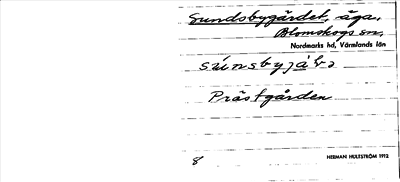 Sundsbygärdet, äga,
Blomskogs sn,
Nordmarks hd, Värmlands län
Prästgården
8 HERMAN HULTSTRÖM 1912